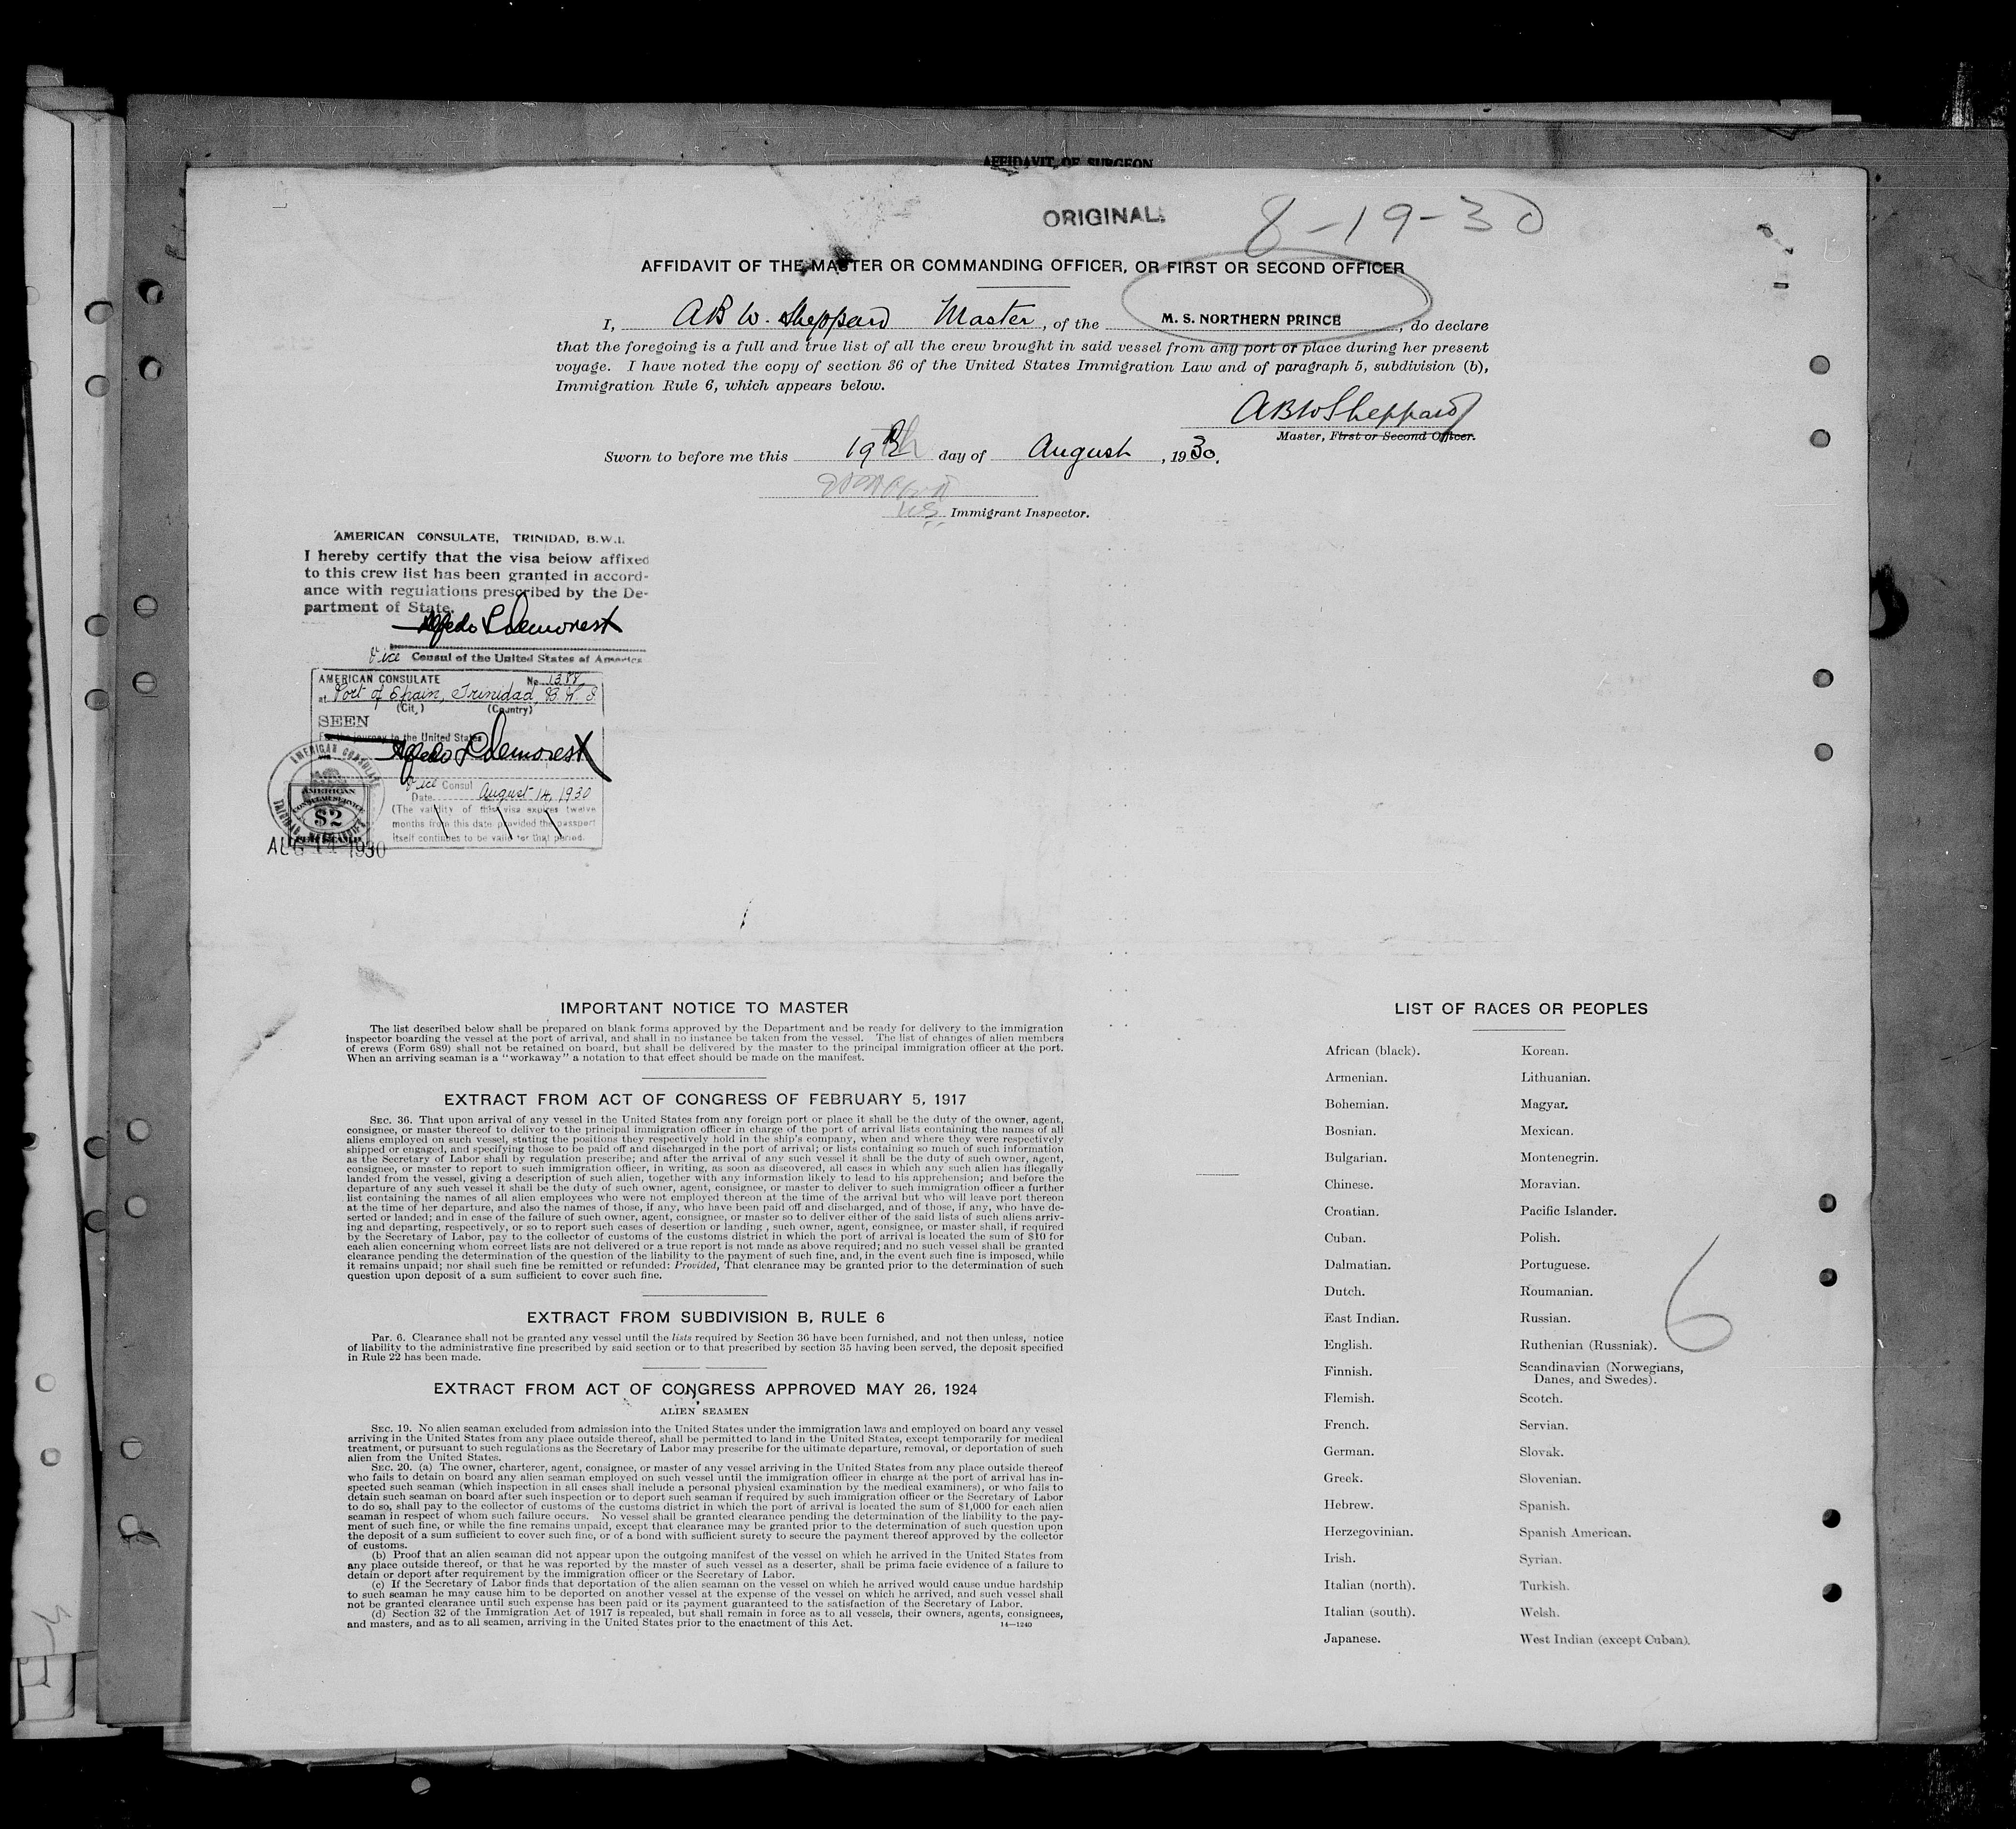 AFFIDAVIT OF SURGEON
ORIGINAL.
8-19-30
AFFIDAVIT OF THE MASTER OR COMMANDING OFFICER, OR FIRST OR SECOND OFFICER
I, A B W. Sheppard Master, of the M. S. NORTHERN PRINCE, do declare
that the foregoing is a full and true list of all the crew brought in said vessel from any port or place during her present
voyage. I have noted the copy of section 36 of the United States Immigration Law and of paragraph 5, subdivision (b),
Immigration Rule 6, which appears below.
A B W Sheppard
Master, First or Second Officer.
Sworn to before me this 19th day of August, 1930.
US Immigrant Inspector.
AMERICAN CONSULATE, TRINIDAD, B.W.I.
I hereby certify that the visa below affixed
to this crew list has been granted in accord-
ance with regulations prescribed by the De-
partment of State.
Alfredo L Demorest
Vice Consul of the United States of America
AMERICAN CONSULATE No. 1388
at Port of Spain, Trinidad, B.W.I
(City) (Country)
SEEN
For the journey to the United States
Alfredo L Demorest
Vice Consul
Date August 14, 1930
(The validity of this visa expires twelve
months from this date provided the passport
itself continues to be valid for that period.
AMERICAN CONSULATE
TRINIDAD
AMERICAN
CONSULAR SERVICE
$2
AUG 14 1930
IMPORTANT NOTICE TO MASTER
The list described below shall be prepared on blank forms approved by the Department and be ready for delivery to the immigration
inspector boarding the vessel at the port of arrival, and shall in no instance be taken from the vessel. The list of changes of alien members
of crews (Form 689) shall not be retained on board, but shall be delivered by the master to the principal immigration officer at the port.
When an arriving seaman is a "workaway" a notation to that effect should be made on the manifest.
EXTRACT FROM ACT OF CONGRESS OF FEBRUARY 5, 1917
SEC. 36. That upon arrival of any vessel in the United States from any foreign port or place it shall be the duty of the owner, agent,
consignee, or master thereof to deliver to the principal immigration officer in charge of the port of arrival lists containing the names of all
aliens employed on such vessel, stating the positions they respectively hold in the ship's company, when and where they were respectively
shipped or engaged, and specifying those to be paid off and discharged in the port of arrival; or lists containing so much of such information
as the Secretary of Labor shall by regulation prescribe; and after the arrival of any such vessel it shall be the duty of such owner, agent,
consignee, or master to report to such immigration officer, in writing, as soon as discovered, all cases in which any such alien has illegally
landed from the vessel, giving a description of such alien, together with any information likely to lead to his apprehension; and before the
departure of any such vessel it shall be the duty of such owner, agent, consignee, or master to deliver to such immigration officer a further
list containing the names of all alien employees who were not employed thereon at the time of the arrival but who will leave port thereon
at the time of her departure, and also the names of those, if any, who have been paid off and discharged, and of those, if any, who have de-
serted or landed; and in case of the failure of such owner, agent, consignee, or master so to deliver either of the said lists of such aliens arriv-
ing and departing, respectively, or so to report such cases of desertion or landing , such owner, agent, consignee, or master shall, if required
by the Secretary of Labor, pay to the collector of customs of the customs district in which the port of arrival is located the sum of $10 for
each alien concerning whom correct lists are not delivered or a true report is not made as above required; and no such vessel shall be granted
clearance pending the determination of the question of the liability to the payment of such fine, and, in the event such fine is imposed, while
it remains unpaid; nor shall such fine be remitted or refunded: Provided, That clearance may be granted prior to the determination of such
question upon deposit of a sum sufficient to cover such fine.
EXTRACT FROM SUBDIVISION B, RULE 6
Par. 6. Clearance shall not be granted any vessel until the lists required by Section 36 have been furnished, and not then unless, notice
of liability to the administrative fine prescribed by said section or to that prescribed by section 35 having been served, the deposit specified
in Rule 22 has been made.
EXTRACT FROM ACT OF CONGRESS APPROVED MAY 26, 1924
ALIEN SEAMEN
SEC. 19. No alien seaman excluded from admission into the United States under the immigration laws and employed on board any vessel
arriving in the United States from any place outside thereof, shall be permitted to land in the United States, except temporarily for medical
treatment, or pursuant to such regulations as the Secretary of Labor may prescribe for the ultimate departure, removal, or deportation of such
alien from the United States.
SEC. 20. (a) The owner, charterer, agent, consignee, or master of any vessel arriving in the United States from any place outside thereof
who fails to detain on board any alien seaman employed on such vessel until the immigration officer in charge at the port of arrival has in-
spected such seaman (which inspection in all cases shall include a personal physical examination by the medical examiners), or who fails to
detain such seaman on board after such inspection or to deport such seaman if required by such immigration officer or the Secretary of Labor
to do so, shall pay to the collector of customs of the customs district in which the port of arrival is located the sum of $1,000 for each alien
seaman in respect of whom such failure occurs. No vessel shall be granted clearance pending the determination of the liability to the pay-
ment of such fine, or while the fine remains unpaid, except that clearance may be granted prior to the determination of such question upon
the deposit of a sum sufficient to cover such fine, or of a bond with sufficient surety to secure the payment thereof approved by the collector
of customs.
(b) Proof that an alien seaman did not appear upon the outgoing manifest of the vessel on which he arrived in the United States from
any place outside thereof, or that he was reported by the master of such vessel as a deserter, shall be prima facie evidence of a failure to
detain or deport after requirement by the immigration officer or the Secretary of Labor.
(c) If the Secretary of Labor finds that deportation of the alien seaman on the vessel on which he arrived would cause undue hardship
to such seaman he may cause him to be deported on another vessel at the expense of the vessel on which he arrived, and such vessel shall
not be granted clearance until such expense has been paid or its payment guaranteed to the satisfaction of the Secretary of Labor.
(d) Section 32 of the Immigration Act of 1917 is repealed, but shall remain in force as to all vessels, their owners, agents, consignees,
and masters, and as to all seamen, arriving in the United States prior to the enactment of this Act.
14—1240
LIST OF RACES OR PEOPLES
African (black). Korean.
Armenian. Lithuanian.
Bohemian. Magyar.
Bosnian. Mexican.
Bulgarian. Montenegrin.
Chinese. Moravian.
Croatian. Pacific Islander.
Cuban. Polish.
Dalmatian. Portuguese.
Dutch. Roumanian.
East Indian. Russian.
English. Ruthenian (Russniak).
Finnish. Scandinavian (Norwegians,
Danes, and Swedes).
Flemish. Scotch.
French. Servian.
German. Slovak.
Greek. Slovenian.
Hebrew. Spanish.
Herzegovinian. Spanish American.
Irish. Syrian.
Italian (north). Turkish.
Italian (south). Welsh.
Japanese. West Indian (except Cuban).
6